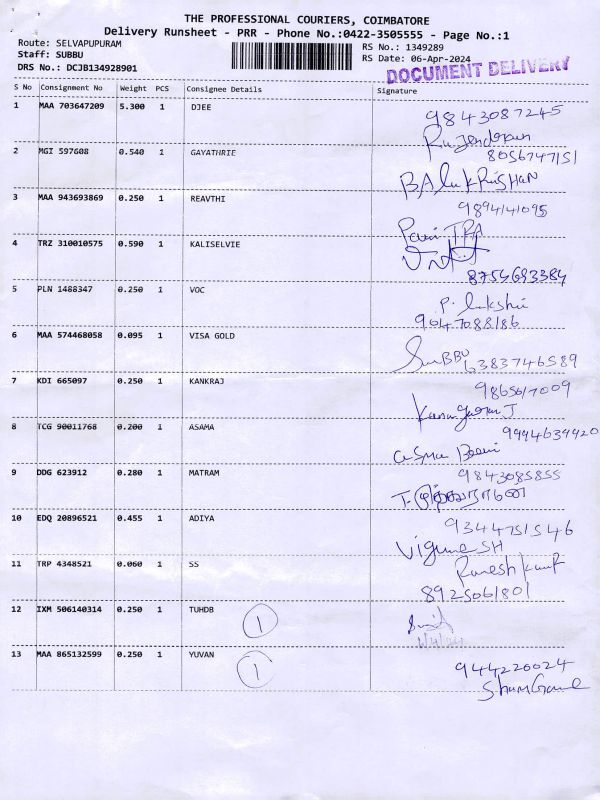 THE PROFESSIONAL COURIERS, COIMBATORE
Delivery Runsheet - PRR - Phone No.:0422-3505555 - Page No.:1
Route: SELVAPUPURAM
RS No.: 1349289
Staff: SUBBU
RS Date: 06-Apr-2024
DRS No.: DCJB134928901
DOCUMENT DELIVERY
S No Consignment No Weight PCS Consignee Details Signature
1 MAA 703647209 5.300 1 DJEE 9843087245
Rajendran
2 MGI 597608 0.540 1 GAYATHRIE 8056747151
BAlukRISHAN
3 MAA 943693869 0.250 1 REAVTHI 9894141095
4 TRZ 310010575 0.590 1 KALISELVIE
8754693384
5 PLN 1488347 0.250 1 VOC P. lakshmi
9047088186
6 MAA 574468058 0.095 1 VISA GOLD SuBBU
6383746589
7 KDI 665097 0.250 1 KANKRAJ 9865617009
Kanagaraj J
8 TCG 90011768 0.200 1 ASAMA 9994639920
asma Beevi
9 DDG 623912 0.280 1 MATRAM 9843085855
10 EDQ 20896521 0.455 1 ADIYA 9344751546
VigneSH
11 TRP 4348521 0.060 1 SS Ramesh kumar
8925061801
12 IXM 506140314 0.250 1 TUHDB 1
6/4/24
13 MAA 865132599 0.250 1 YUVAN 1 944220024